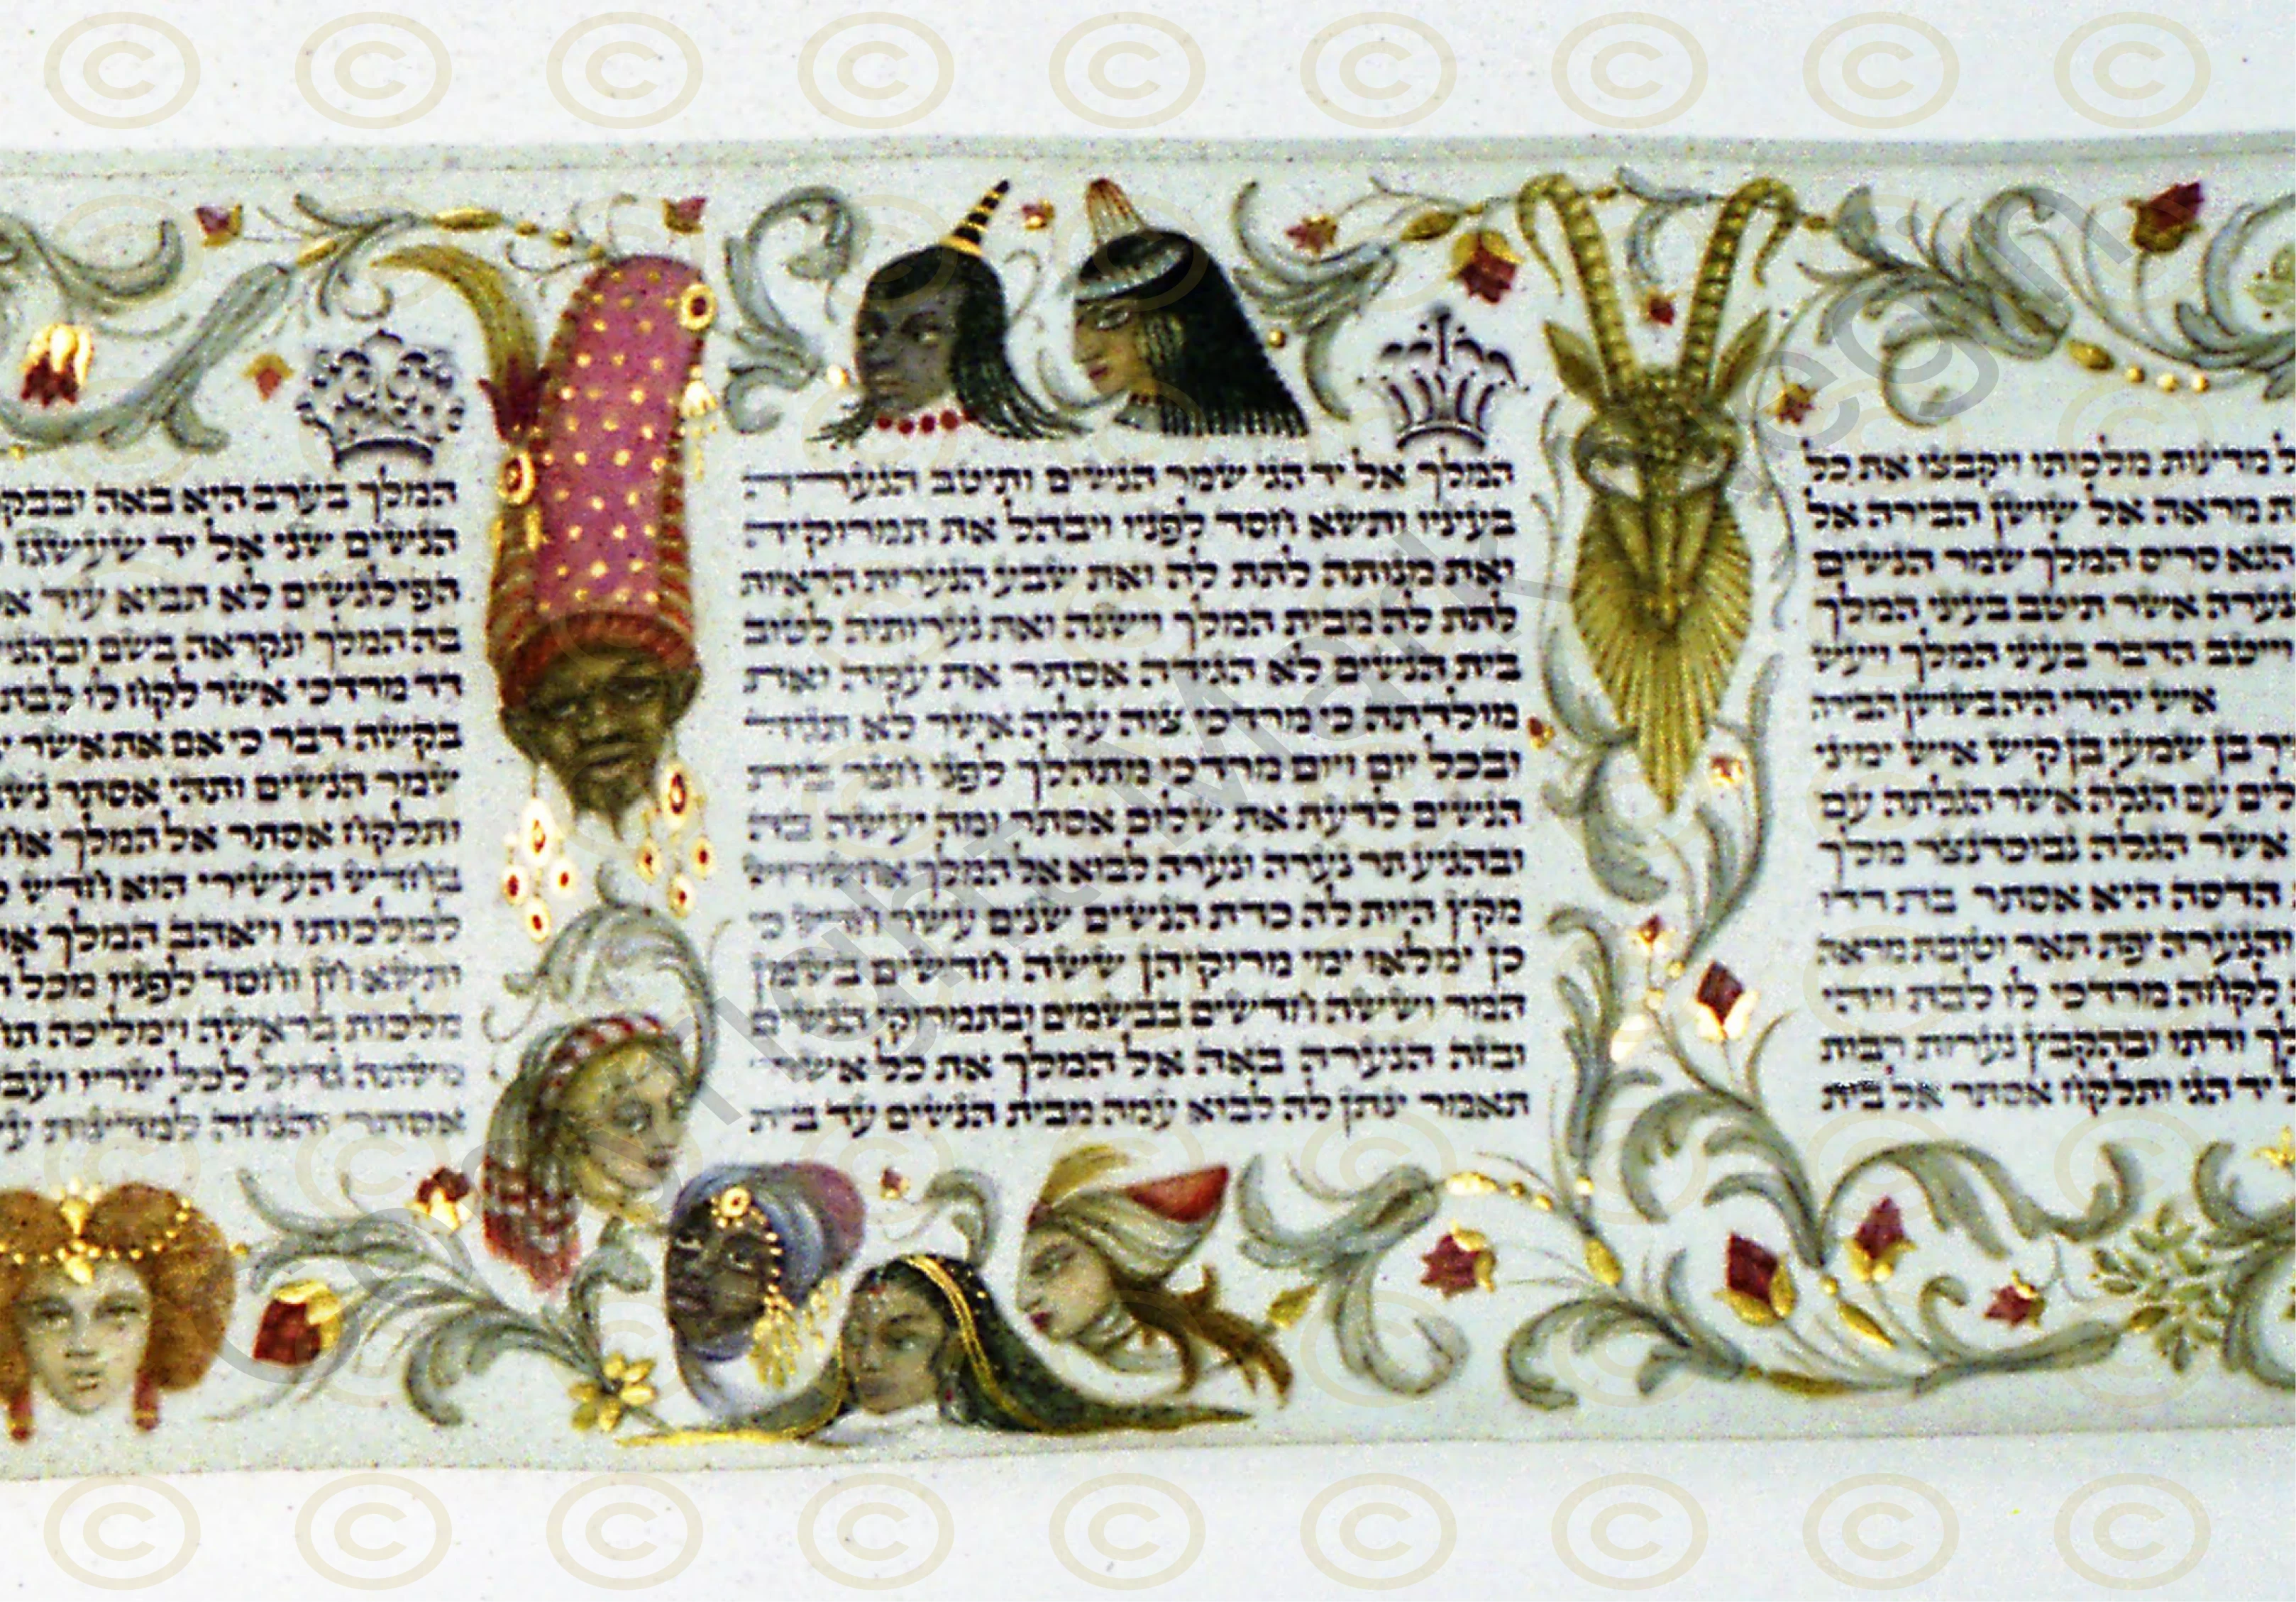 מדינות מלכותו ויקבצו את כל
מראה אל שושן הבירה אל
הגא סריס המלך שמר הנשים
נערה אשר תיטב בעיני המלך
וייטב הדבר בעיני המלך ויעש
איש יהודי היה בשושן הבירה
בן שמעי בן קיש איש ימיני
עם הגלה אשר הגלתה עם
אשר הגלה נבוכדנצר מלך
הדסה היא אסתר בת דדו
והנערה יפת תאר וטובת מראה
לקחה מרדכי לו לבת ויהי
ודתו ובהקבץ נערות רבות
יד הגי ותלקח אסתר אל בית
המלך אל יד הגי שמר הנשים ותיטב הנערה
בעיניו ותשא חסד לפניו ויבהל את תמרוקיה
ואת מנותה לתת לה ואת שבע הנערות הראיות
לתת לה מבית המלך וישנה ואת נערותיה לטוב
בית הנשים לא הגידה אסתר את עמה ואת
מולדתה כי מרדכי צוה עליה אשר לא תגיד
ובכל יום ויום מרדכי מתהלך לפני חצר בית
הנשים לדעת את שלום אסתר ומה יעשה בה
ובהגיע תר נערה ונערה לבוא אל המלך אחשורוש
מקץ היות לה כדת הנשים שנים עשר חדש כי
כן ימלאו ימי מרוקיהן ששה חדשים בשמן
המר וששה חדשים בבשמים ובתמרוקי הנשים
ובזה הנערה באה אל המלך את כל אשר
תאמר ינתן לה לבוא עמה מבית הנשים עד בית
המלך בערב היא באה ובבק
הנשים שני אל יד שעשגז
הפילגשים לא תבוא עוד
בה המלך ונקראה בשם ובהגי
דד מרדכי אשר לקח לו לבת
בקשה דבר כי אם את אשר
שמר הנשים ותהי אסתר נש
ותלקח אסתר אל המלך
בחדש העשירי הוא חדש
למלכותו ויאהב המלך
ותשא חן וחסד לפניו מכל
מלכות בראשה וימליכה
משתה גדול לכל שריו
אסתר והנחה למדינות